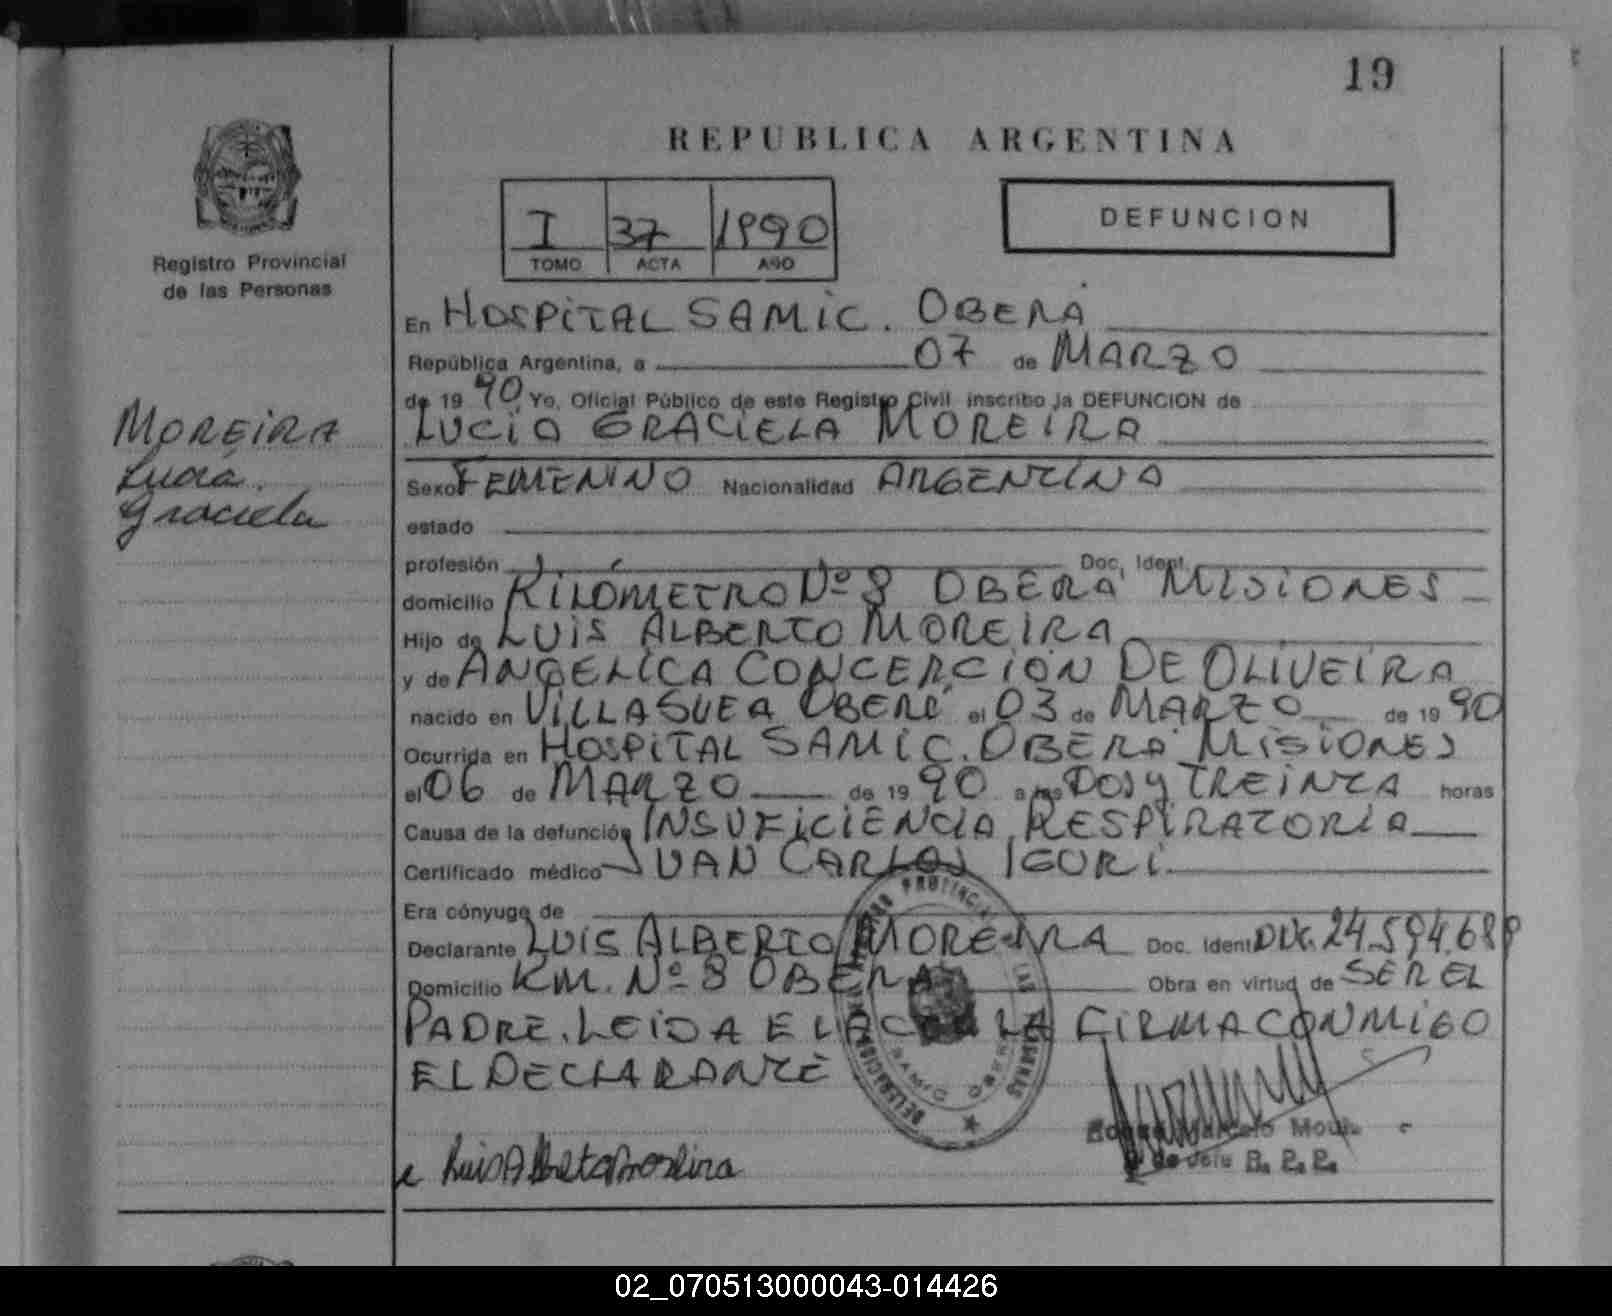 19
REPUBLICA ARGENTINA
I 37 1990
TOMO ACTA AÑO
DEFUNCION
Registro Provincial
de las Personas
MOREIRA
Lucía
Graciela
En HOSPITAL SAMIC. OBERÁ
República Argentina, a 07 de MARZO
de 1990 Yo, Oficial Público de este Registro Civil inscribo la DEFUNCION de
LUCIA GRACIELA MOREIRA
Sexo FEMENINO Nacionalidad ARGENTINA
estado
profesión Doc. Ident.
domicilio KILÓMETRO Nº 8 OBERÁ MISIONES
Hijo de LUIS ALBERTO MOREIRA
y de ANGELICA CONCEPCION DE OLIVEIRA
nacido en VILLA SUEA OBERÁ el 03 de MARZO de 1990
Ocurrida en HOSPITAL SAMIC. OBERÁ MISIONES
el 06 de MARZO de 1990 a las DOS Y TREINTA horas
Causa de la defunción INSUFICIENCIA RESPIRATORIA
Certificado médico JUAN CARLOS IGURI
Era cónyuge de
Declarante LUIS ALBERTO MOREIRA Doc. Ident DNI. 24.594.689
Domicilio KM. Nº 8 OBERA Obra en virtud de SER EL
PADRE. LEIDA EL ACTA LA FIRMA CONMIGO
EL DECLARANTE
Luis Alberto Moreira
02_070513000043-014426